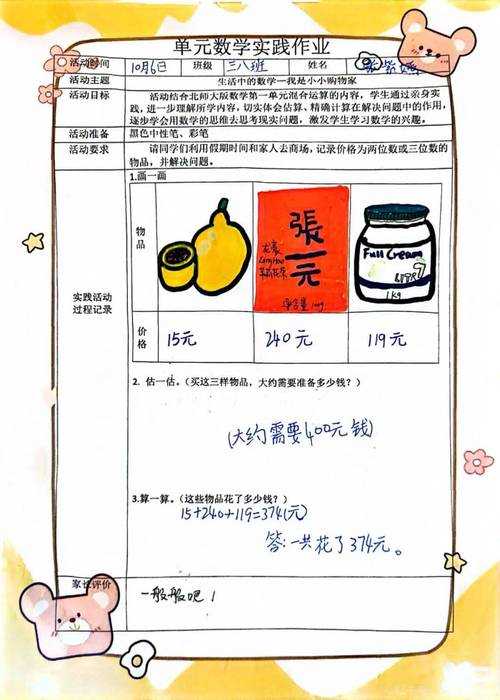 单元数学实践作业
活动时间 10月6日 班级 三八班 姓名
活动主题 生活中的数学—我是小小购物家
活动目标 活动结合北师大版数学第一单元混合运算的内容，学生通过亲身实
践，进一步理解所学内容，切实体会估算、精确计算在解决问题中的作用，
逐步学会用数学的思维去思考现实问题，激发学生学习数学的兴趣。
活动准备 黑色中性笔、彩笔
活动要求 请同学们利用假期时间和家人去商场，记录价格为两位数或三位数的
物品，并解决问题。
实践活动
过程记录
1.画一画
物品
張一元
Full Cream
1KG
价格 15元 240元 119元
2. 估一估。（买这三样物品，大约需要准备多少钱？）
(大约需要400元钱)
3.算一算。（这些物品花了多少钱？）
15+240+119=374(元)
答:一共花了374元。
家长评价 一般般吧！